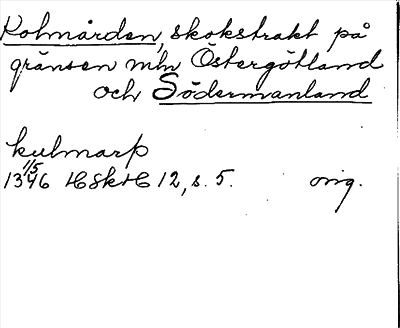 Kolmården, skokstrakt på
gränsen mln Östergötland
och Södermanland
kulmarp
1346 1/5 HSH 12, s. 5. orig.